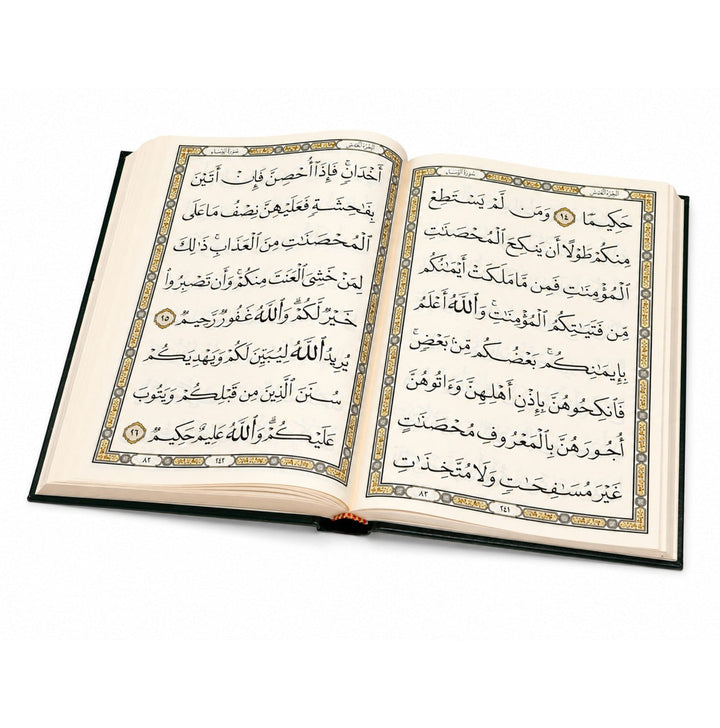 سورة النساء
حَكِيمًا ١٤ وَمَن لَّمْ يَسْتَطِعْ
مِنكُمْ طَوْلًا أَن يَنكِحَ ٱلْمُحْصَنَٰتِ
ٱلْمُؤْمِنَٰتِ فَمِن مَّا مَلَكَتْ أَيْمَٰنُكُم
مِّن فَتَيَٰتِكُمُ ٱلْمُؤْمِنَٰتِ ۚ وَٱللَّهُ أَعْلَمُ
بِإِيمَٰنِكُم ۚ بَعْضُكُم مِّنۢ بَعْضٍ ۚ
فَٱنكِحُوهُنَّ بِإِذْنِ أَهْلِهِنَّ وَءَاتُوهُنَّ
أُجُورَهُنَّ بِٱلْمَعْرُوفِ مُحْصَنَٰتٍ
غَيْرَ مُسَٰفِحَٰتٍ وَلَا مُتَّخِذَٰتِ
٨٢ ٢٤١
سورة النساء
أَخْدَانٍ ۚ فَإِذَآ أُحْصِنَّ فَإِنْ أَتَيْنَ
بِفَٰحِشَةٍ فَعَلَيْهِنَّ نِصْفُ مَا عَلَى
ٱلْمُحْصَنَٰتِ مِنَ ٱلْعَذَابِ ۚ ذَٰلِكَ
لِمَنْ خَشِىَ ٱلْعَنَتَ مِنكُمْ ۚ وَأَن تَصْبِرُوا۟
خَيْرٌ لَّكُمْ ۗ وَٱللَّهُ غَفُورٌ رَّحِيمٌ ١٥
يُرِيدُ ٱللَّهُ لِيُبَيِّنَ لَكُمْ وَيَهْدِيَكُمْ
سُنَنَ ٱلَّذِينَ مِن قَبْلِكُمْ وَيَتُوبَ
عَلَيْكُمْ ۗ وَٱللَّهُ عَلِيمٌ حَكِيمٌ ٢٦
٨٢ ٢٤٢